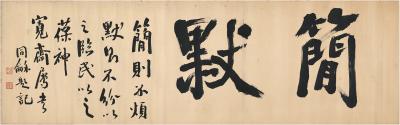 簡默
簡則不煩
默則不紛以
之臨民以之
葆神
齋属書
同龢題記